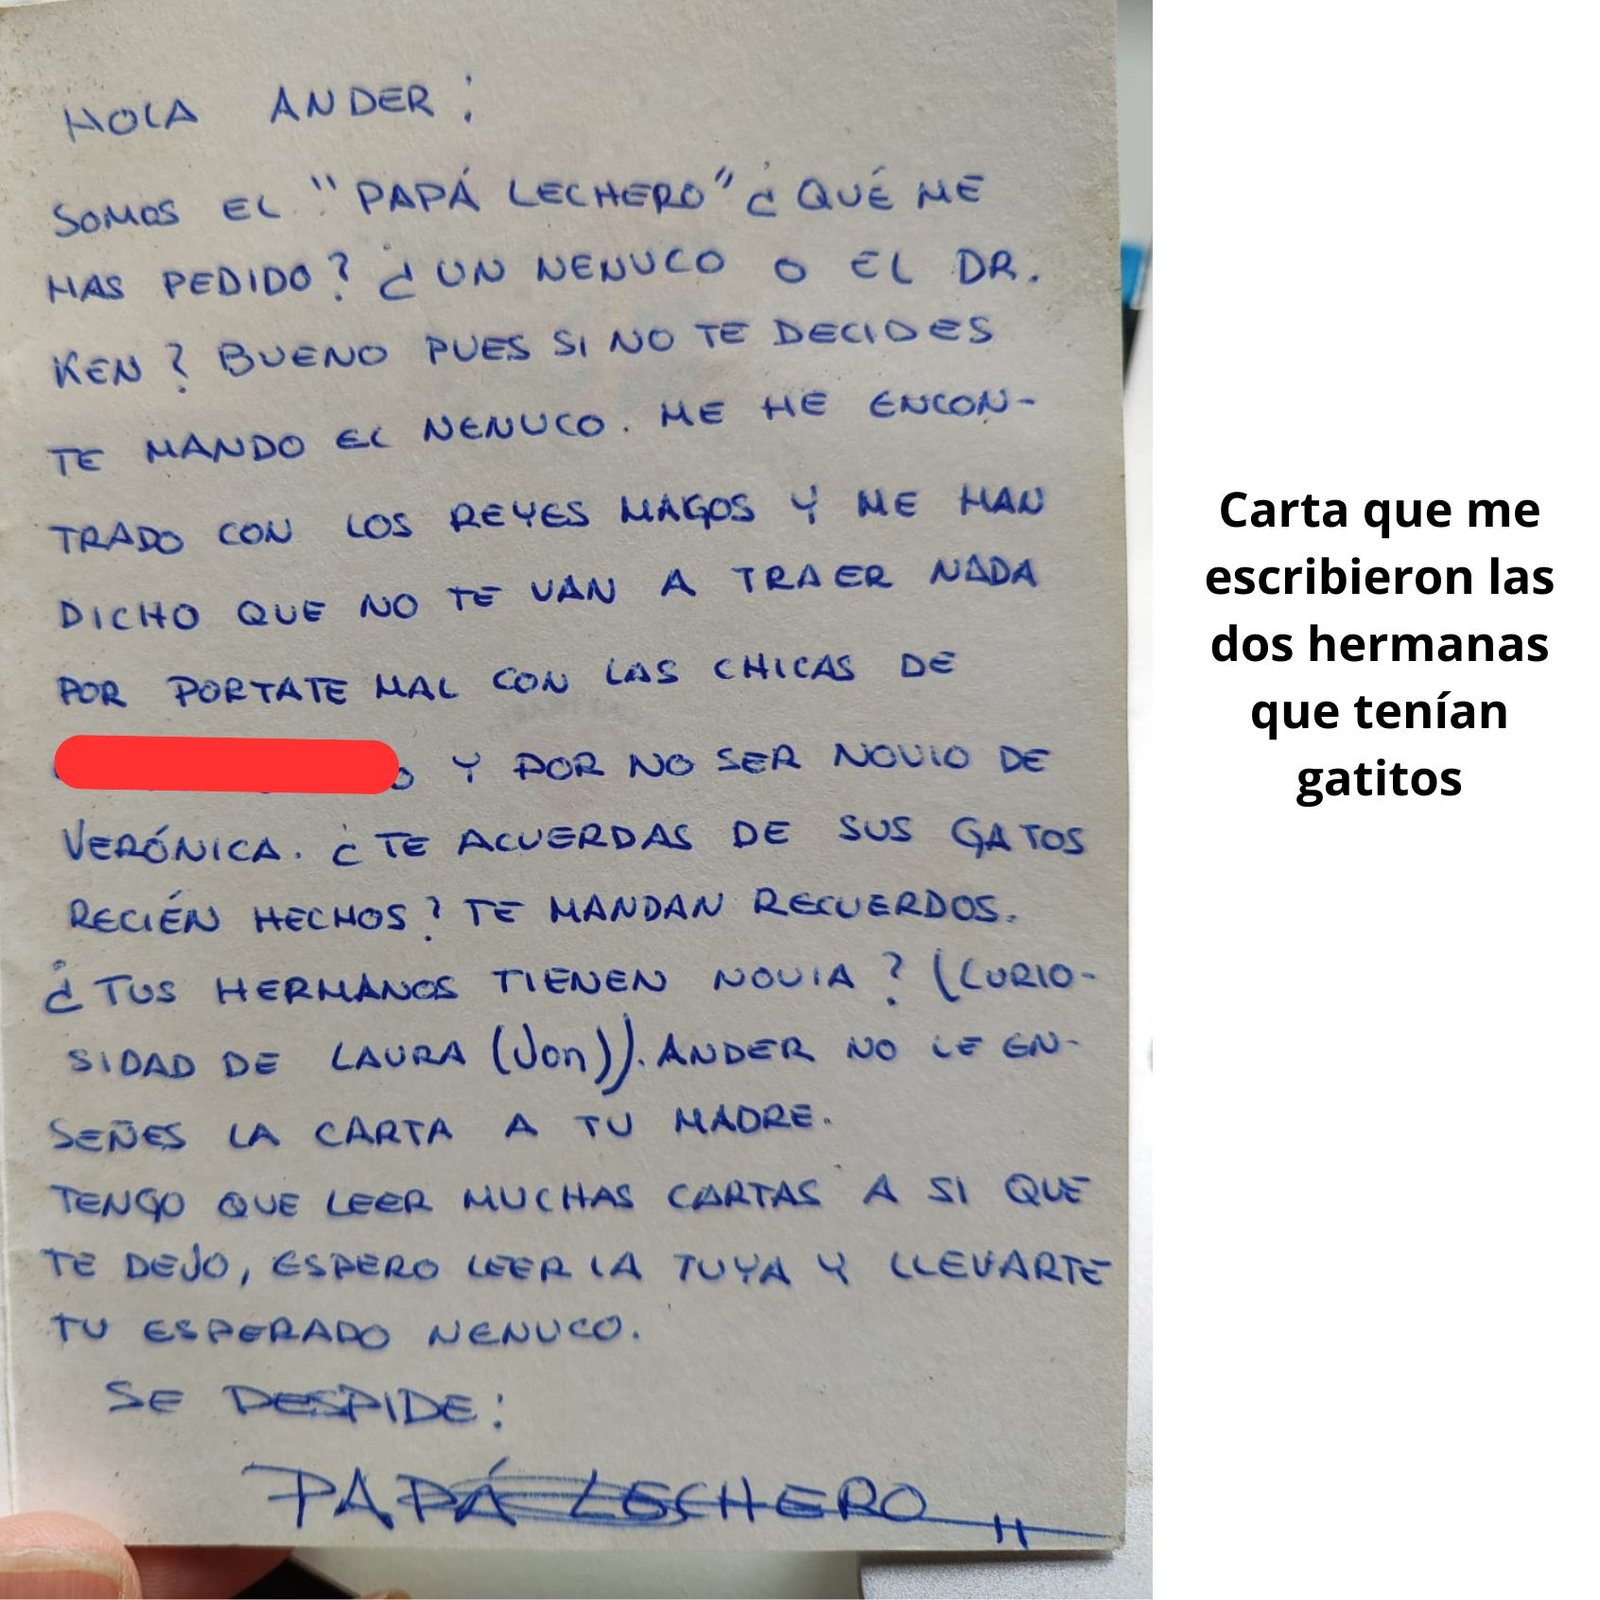 HOLA ANDER:
SOMOS EL "PAPÁ LECHERO" ¿QUÉ ME
HAS PEDIDO? ¿UN NENUCO O EL DR.
KEN? BUENO PUES SI NO TE DECIDES
TE MANDO EL NENUCO. ME HE ENCON-
TRADO CON LOS REYES MAGOS Y ME HAN
DICHO QUE NO TE VAN A TRAER NADA
POR PORTATE MAL CON LAS CHICAS DE
Y POR NO SER NOVIO DE
VERÓNICA. ¿TE ACUERDAS DE SUS GATOS
RECIÉN HECHOS? TE MANDAN RECUERDOS.
¿TUS HERMANOS TIENEN NOVIA? (CURIO-
SIDAD DE LAURA (Jon)). ANDER NO LE EN-
SEÑES LA CARTA A TU MADRE.
TENGO QUE LEER MUCHAS CARTAS A SI QUE
TE DEJO, ESPERO LEER LA TUYA Y LLEVARTE
TU ESPERADO NENUCO.
SE DESPIDE:
PAPÁ LECHERO
Carta que me
escribieron las
dos hermanas
que tenían
gatitos